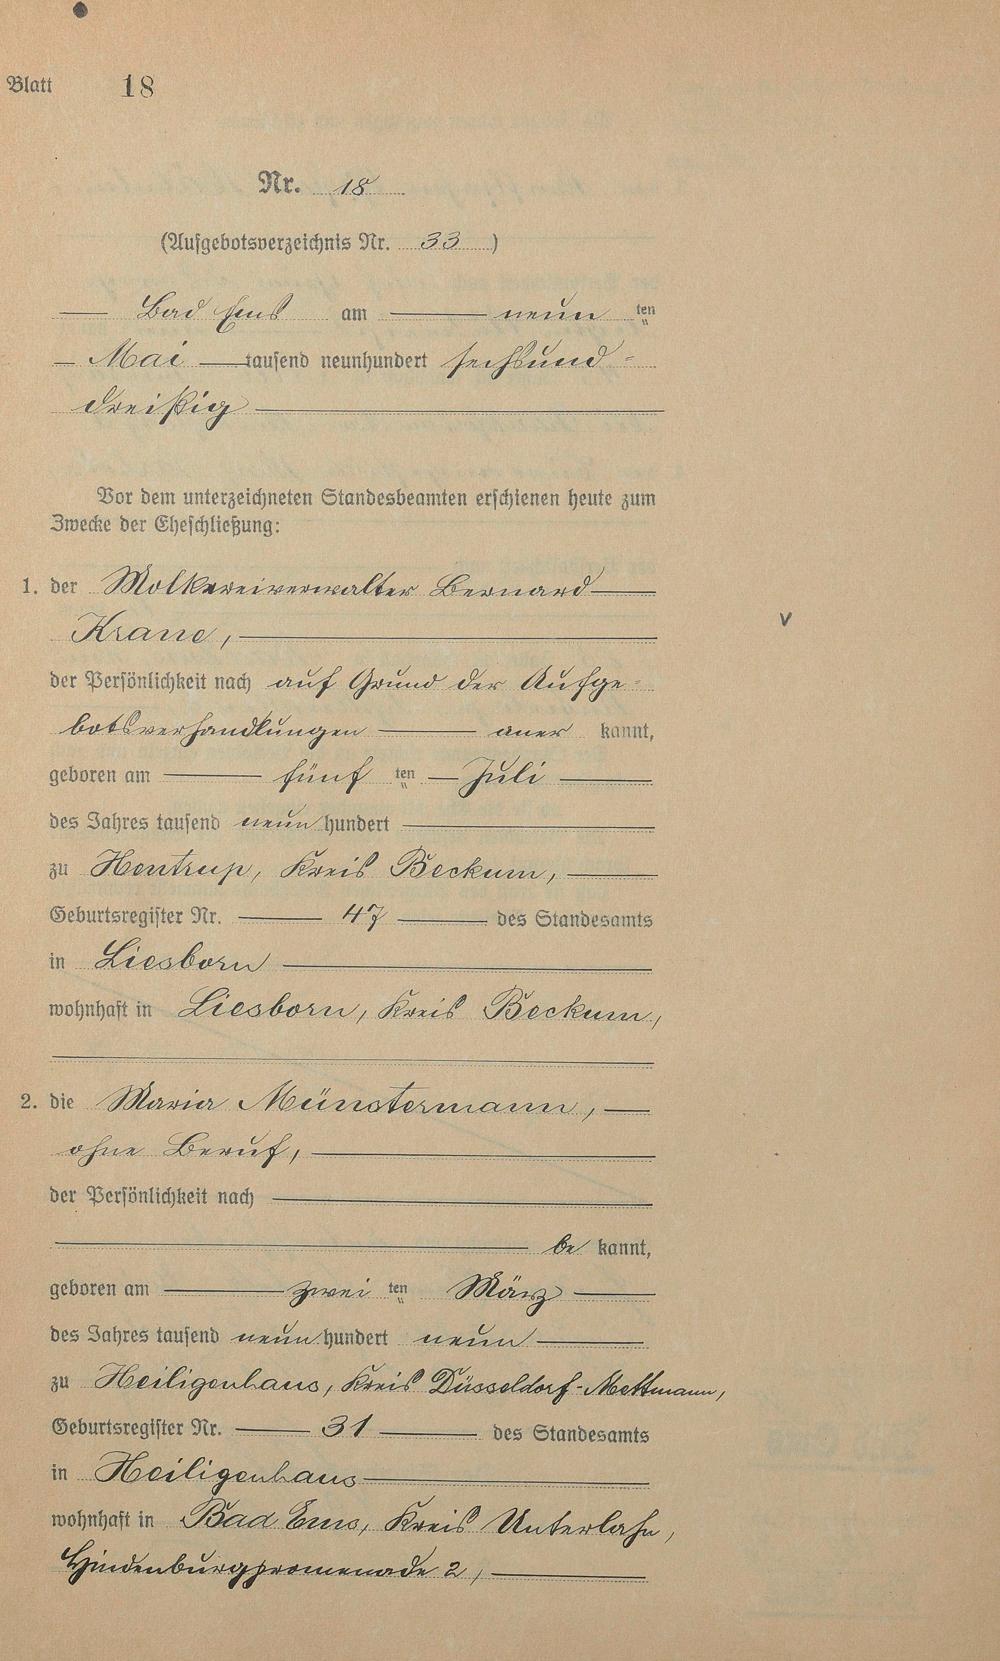 Blatt 18
Nr. 18
(Aufgebotsverzeichnis Nr. 33)
Bad Ems am neun ten
Mai tausend neunhundert sechsund-
dreißig
Vor dem unterzeichneten Standesbeamten erschienen heute zum
Zwecke der Eheschließung:
1. der Molkereiverwalter Bernard
Krane,
der Persönlichkeit nach auf Grund der Aufge-
botsverhandlungen aner kannt,
geboren am fünf ten Juli
des Jahres tausend neun hundert
zu Hentrup, Kreis Beckum,
Geburtsregister Nr. 47 des Standesamts
in Liesborn
wohnhaft in Liesborn, Kreis Beckum,
2. die Maria Münstermann,
ohne Beruf,
der Persönlichkeit nach
be kannt,
geboren am zwei ten März
des Jahres tausend neun hundert neun
zu Heiligenhaus, Kreis Düsseldorf-Mettmann,
Geburtsregister Nr. 31 des Standesamts
in Heiligenhaus
wohnhaft in Bad Ems, Kreis Unterlahn,
Hindenburgpromenade 2,